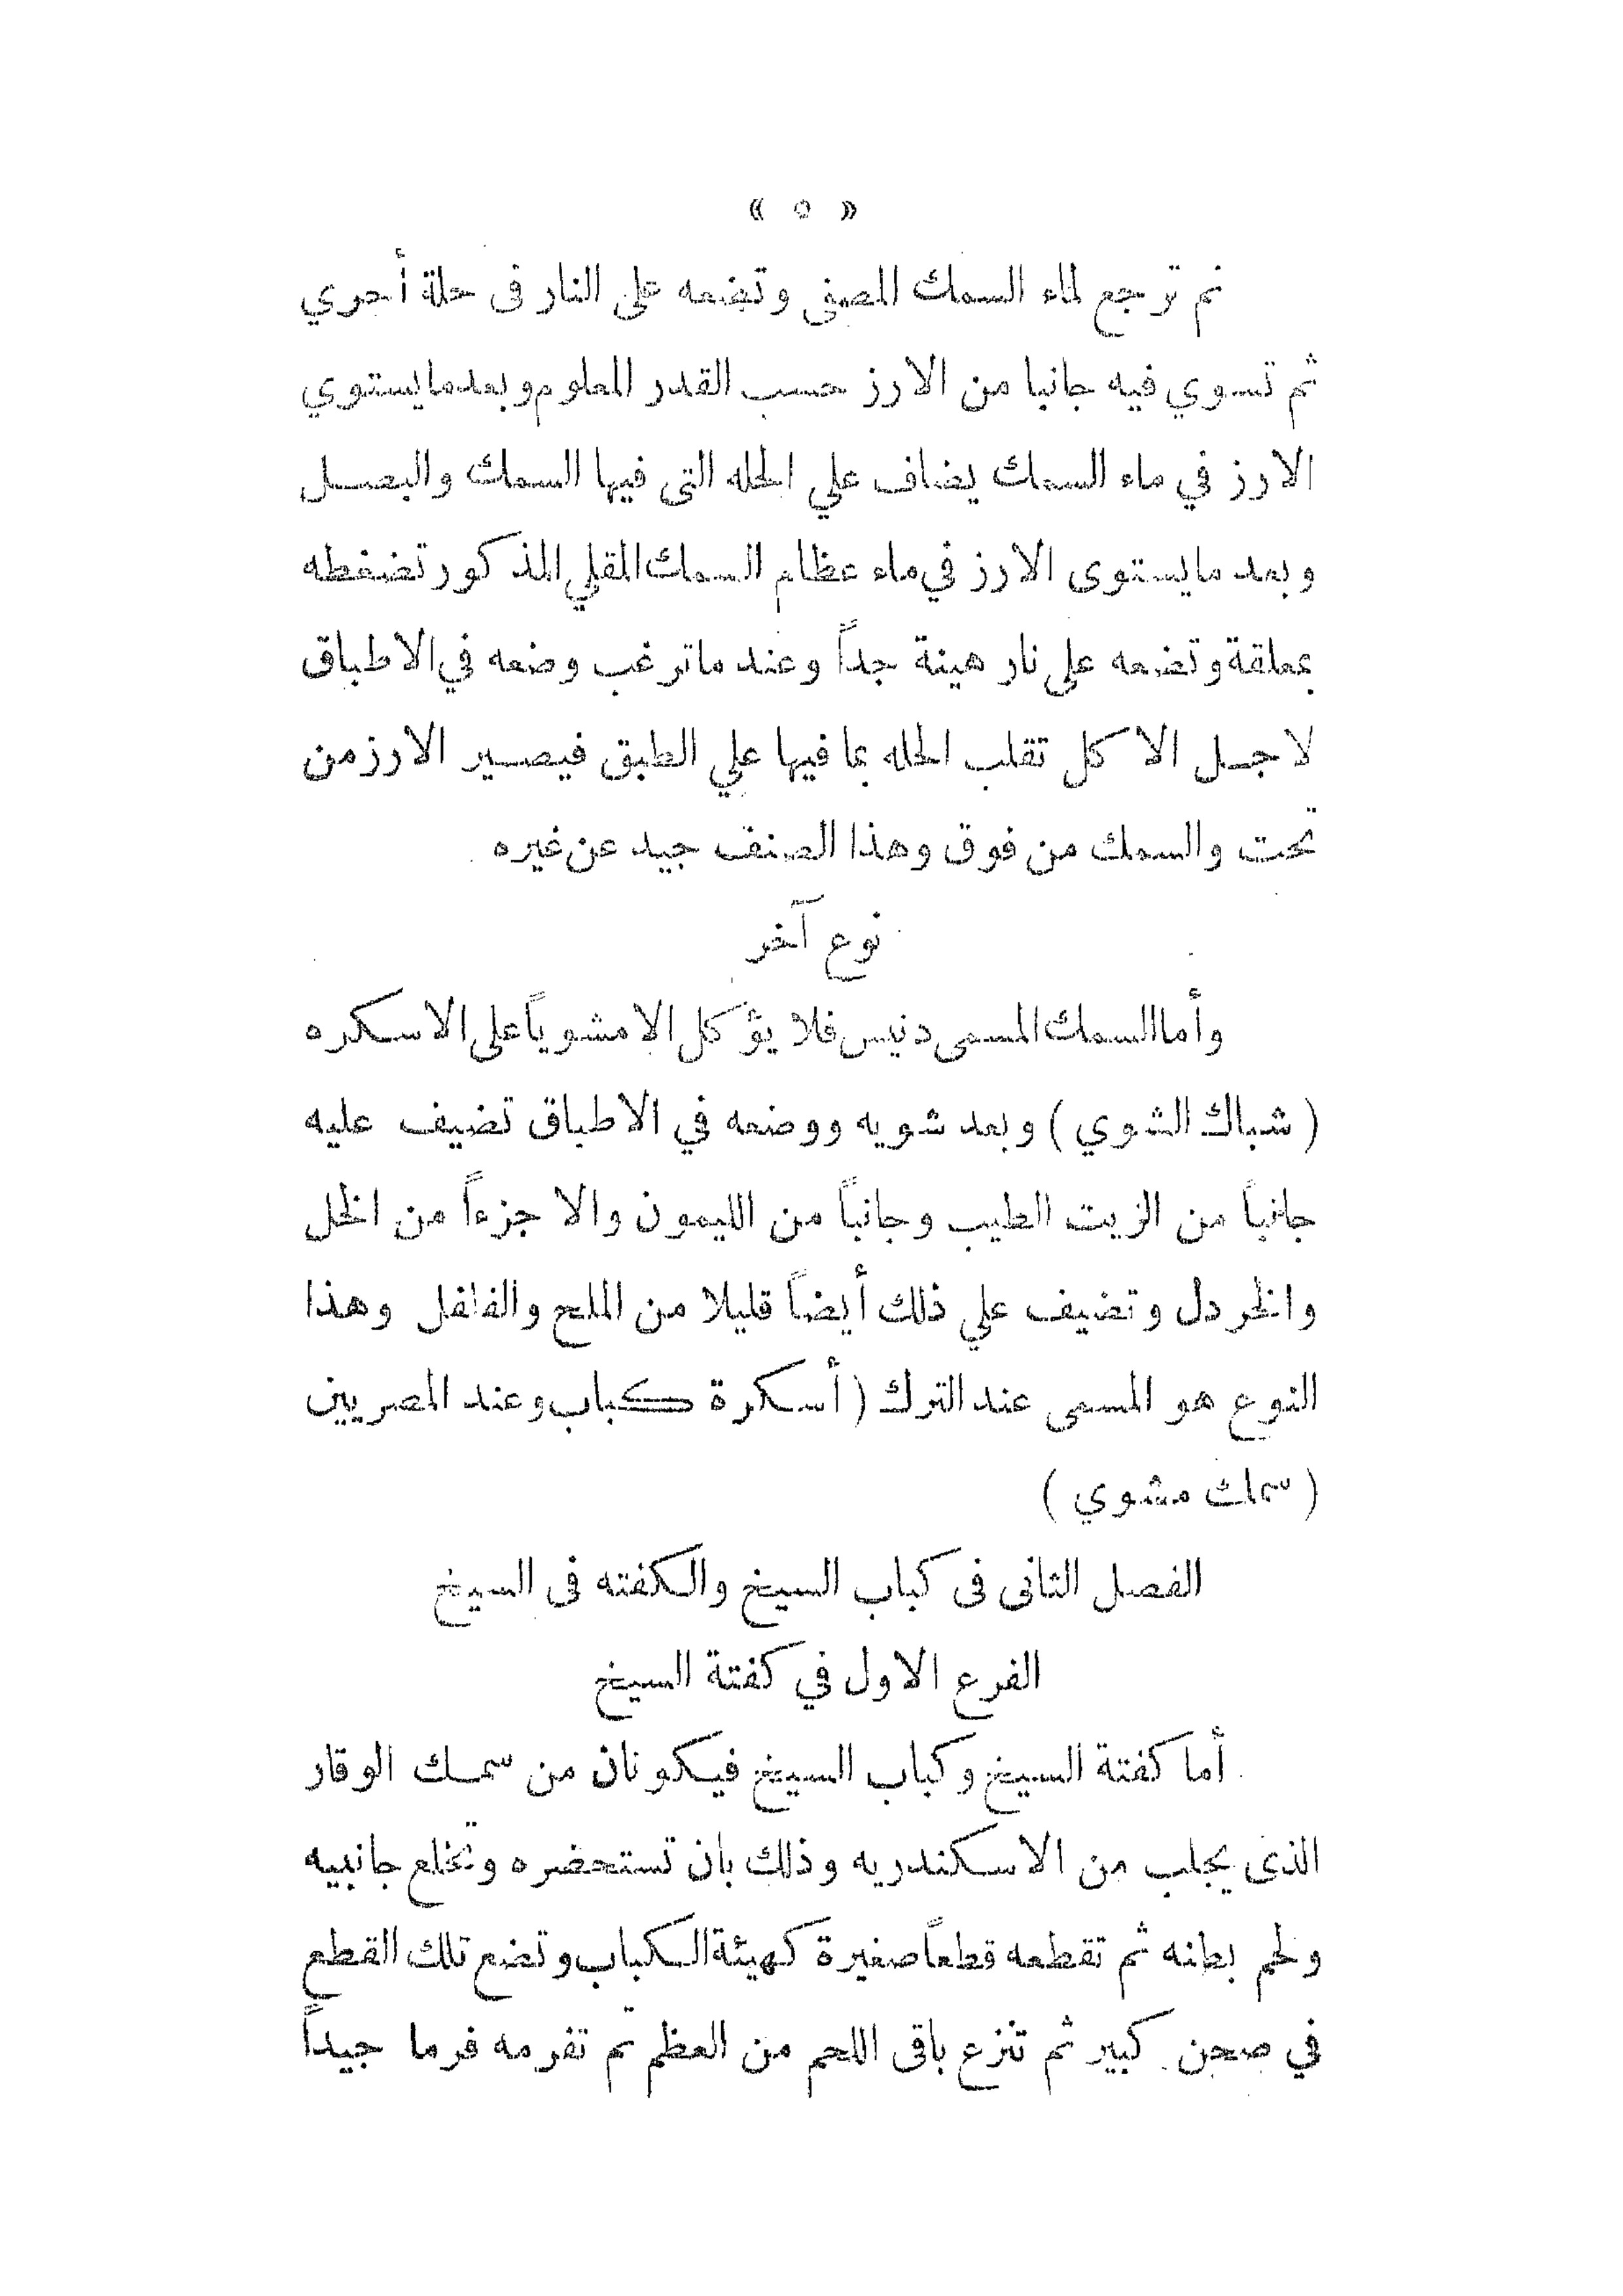 « ٥ »
ثم ترجع لماء السمك المصفى وتضعه على النار فى حلة أخري
ثم تسوي فيه جانبا من الارز حسب القدر المعلوم وبعد ما يستوي
الارز في ماء السمك يضاف علي الحله التى فيها السمك والبصل
وبعد ما يستوى الارز في ماء عظام السمك المقلي المذكور تضغطه
بملعقة وتضعه على نار هينة جداً وعند ما ترغب وضعه في الاطباق
لاجل الاكل تقلب الحله بما فيها علي الطبق فيصير الارز من
تحت والسمك من فوق وهذا الصنف جيد عن غيره
نوع آخر
وأما السمك المسمى دنيس فلا يؤكل الا مشوياً على الاسكره
( شباك الشوي ) وبعد شويه ووضعه في الاطباق تضيف عليه
جانباً من الزيت الطيب وجانباً من الليمون والا جزءاً من الخل
والخردل وتضيف علي ذلك أيضاً قليلا من الملح والفلفل وهذا
النوع هو المسمى عند الترك ( أسكرة كباب وعند المصريين
( سمك مشوي )
الفصل الثانى فى كباب السيخ والكفته فى السيخ
الفرع الاول في كفتة السيخ
أما كفتة السيخ وكباب السيخ فيكونان من سمك الوقار
الذى يجلب من الاسكندريه وذلك بان تستحضره وتخلع جانبيه
ولحم بطنه ثم تقطعه قطعاً صغيرة كهيئة الكباب وتضع تلك القطع
في صحن كبير ثم تنزع باقى اللحم من العظم ثم تفرمه فرما جيداً